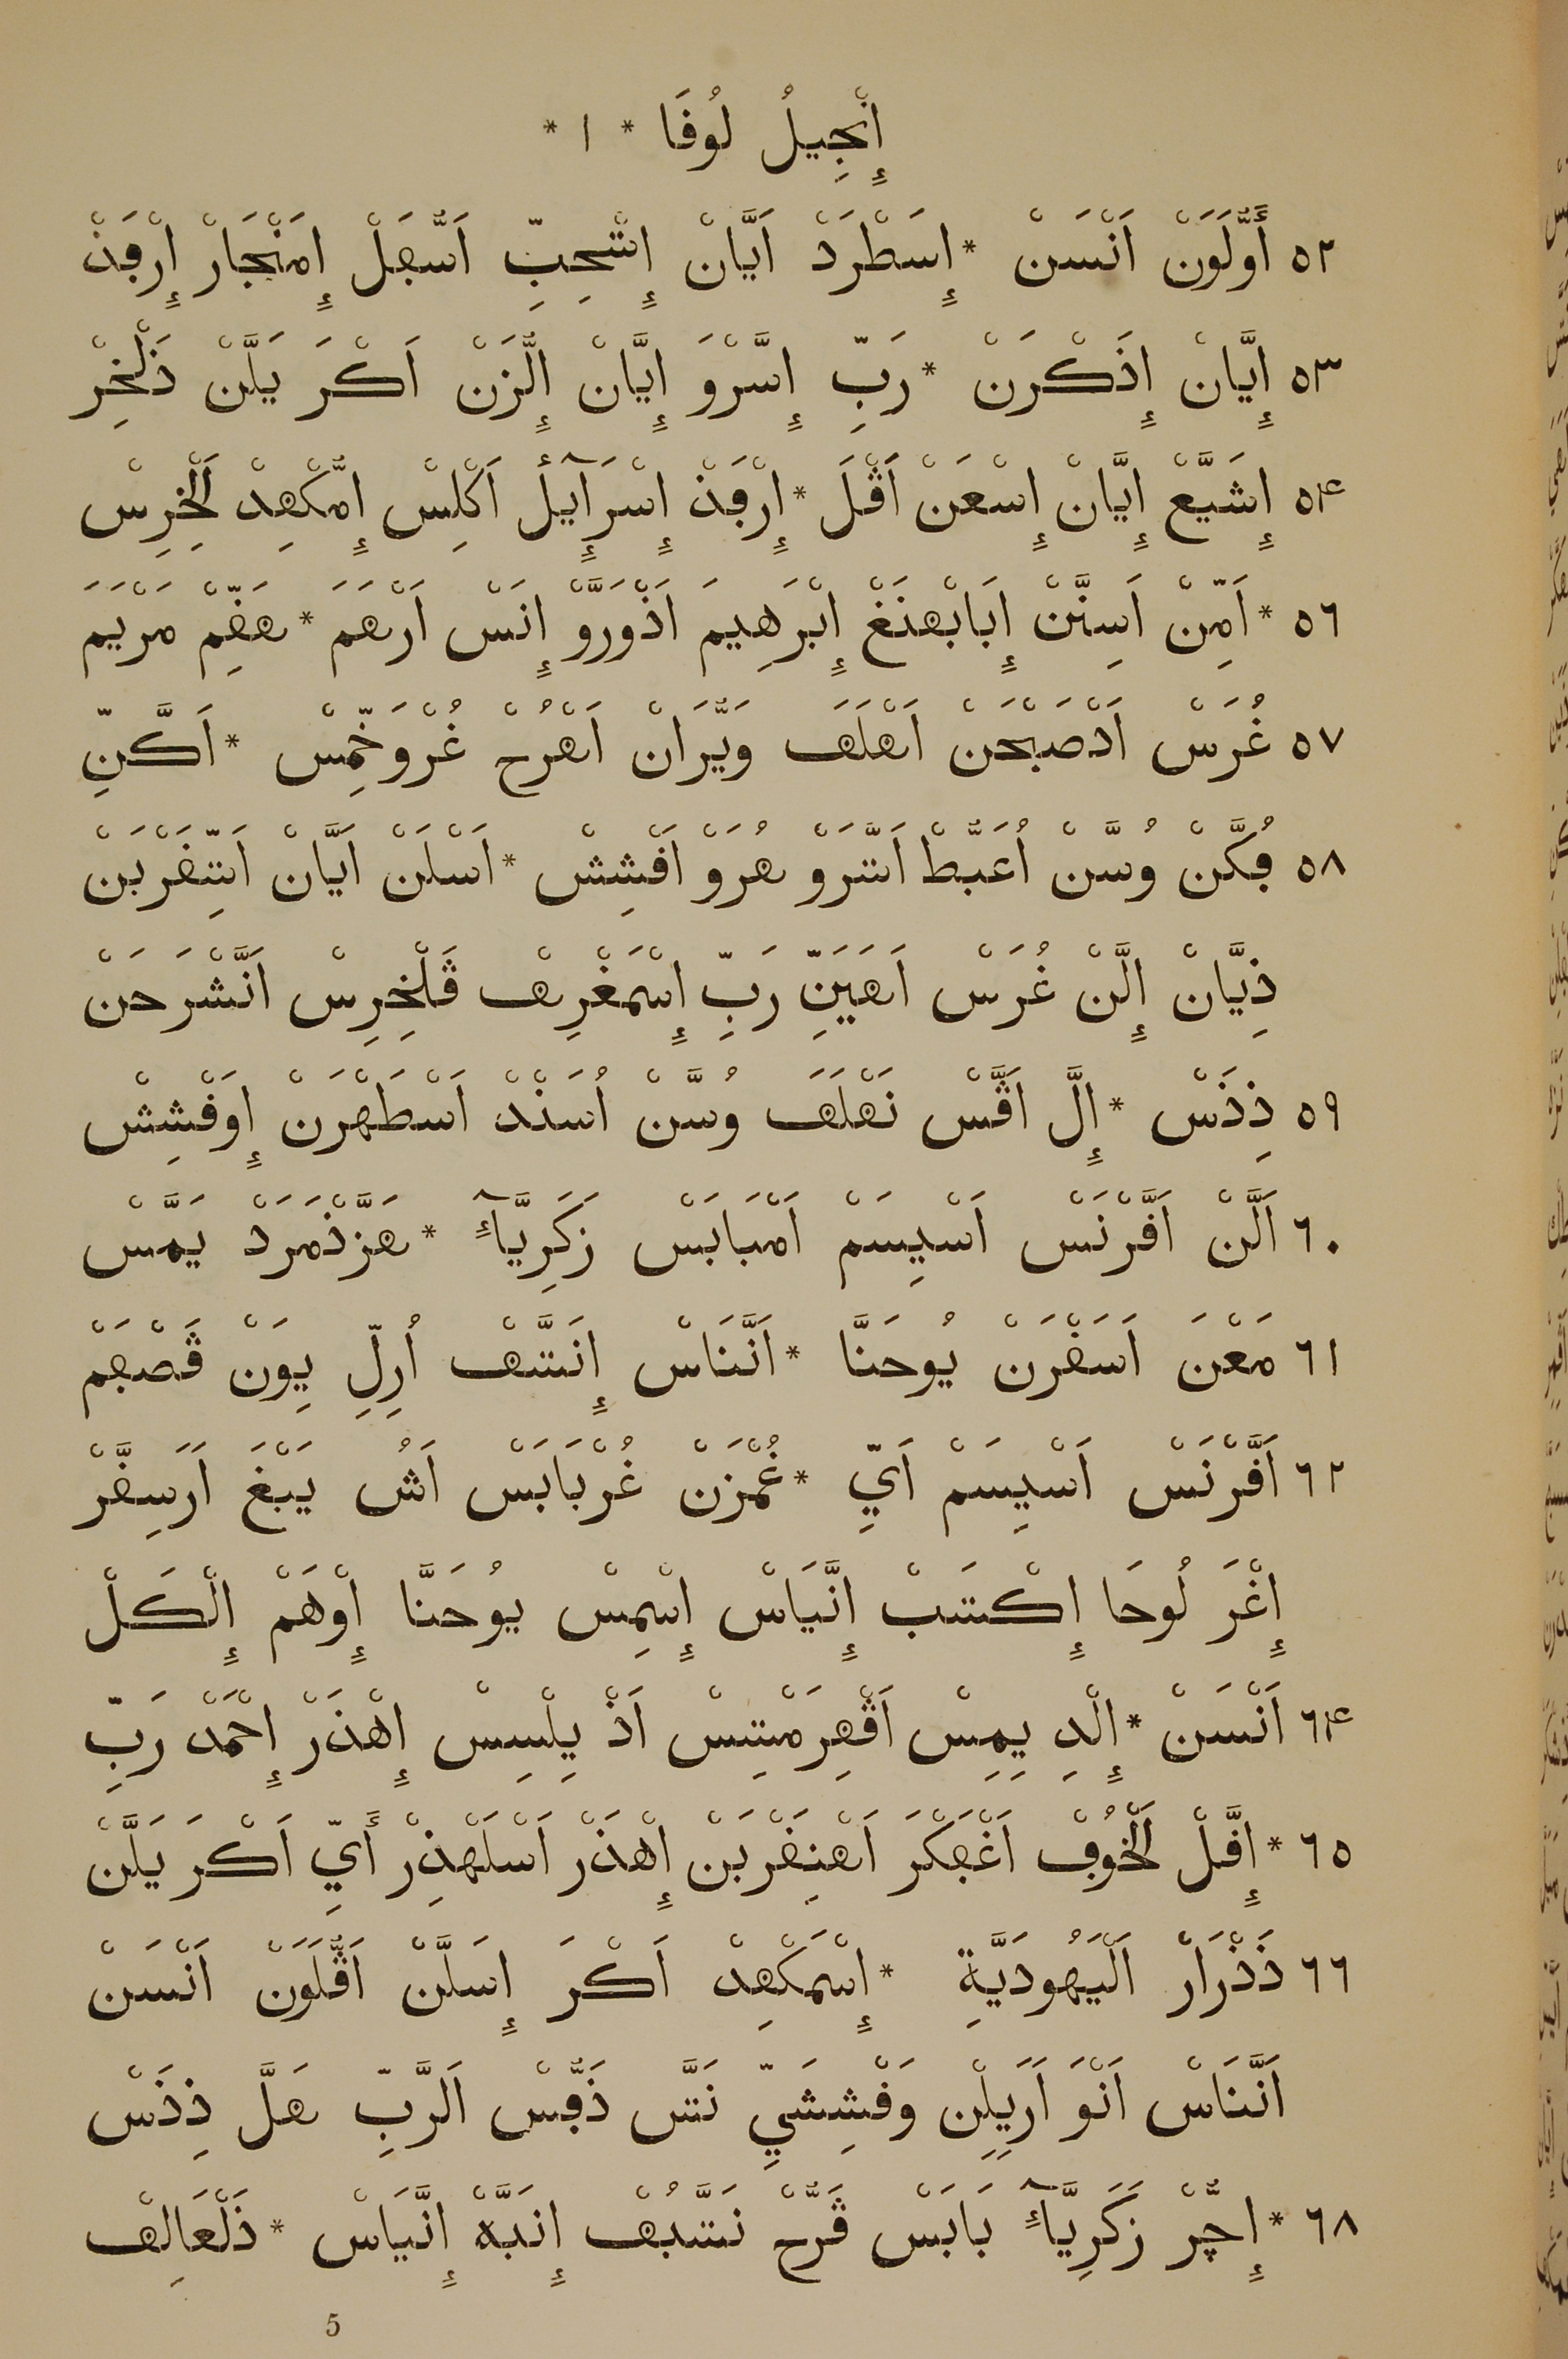 إِنْجِيلُ لُوفَا * ١ *
٥٢ أَوُّلَوَنْ اَنْسَنْ * إِسَطْرَدْ اَيَّانْ إِتْحِبِّ اَسُّڢَلْ إِمَنْجَارْ إِرْڢَذْ
٥٣ إِيَّانْ إِذَكْرَنْ * رَبِّ إِسَّرْوَ إِيَّانْ إِلُّزَنْ اَكْرَ يَلَّنْ ذَلْخِرْ
٥٤ إِشَيَّعْ إِيَّانْ إِسْعَنْ اَڤْلَ * إِرْڢَذْ إِسْرَآئِيلْ اَكْلِسْ إِمَّكْهِذْ لْخِرِسْ
٥٦ * اَمِّنْ اَسِنَّنْ إِبَابْهنَغْ إِبْرَهِيمَ اَذْوَرَّوْ إِنَسْ اَرْهَمَ * هَقِّمْ مَرْيَمَ
٥٧ غُرَسْ اَدْصَبْحَنْ اَهْلَهَ وَيُّرَانْ اَهْرُحْ غُرْوَخِّمْسْ * اَكَّنِّ
٥٨ ڢُكَّنْ وُسَّنْ اُعَبُّظْ اَتَّرَوْ هُرَوْ اَقْشِشْ * اَسْلَنْ اَيَّانْ اَتِّقَرْبَنْ
ذِيَّانْ إِلَّنْ غُرَسْ اَهَيَنِّ رَبِّ إِسْمَغْرِهْ ڤَلْخِرِسْ اَنَّشْرَحَنْ
٥٩ ذِذَسْ * إِلَّ اَڤَّسْ نَهْلَهَ وُسَّنْ اُسَنْدْ اَسْطَهْرَنْ إِوَقْشِشْ
٦٠ اَلَّنْ اَقَّرْنَسْ اَسْيِسَمْ اَمْبَابَسْ زَكَرِيَّآءَ * هَزَّذْمَرَدْ يَمَّسْ
٦١ مَعْنَ اَسَفْرَنْ يُوحَنَّا * اَنَّنَاسْ إِنَتَّهْ اُرِلِّ يِوَنْ ڤَصْڢَمْ
٦٢ اَقَّرْنَسْ اَسْيِسَمْ اَيِّ * غُمْزَنْ غُرْبَابَسْ اَشُ يَبْغَ اَرَسِقَّرْ
إِغْرَ لُوحَا إِكْتَبْ إِنَّيَاسْ إِسْمِسْ يُوحَنَّا إِوْهَمْ إِلْكَلْ
٦٤ اَنْسَنْ * إِلْدِ يِمِسْ اَڤْهِرَمْتِسْ اَذْ يِلْسِسْ إِهْذَرْ إِحْمَدْ رَبِّ
٦٥ * إِقَّلْ لْخُوڢْ اَغْڢَكْرَ اَهْنِقَرْبَنْ إِهْذَرْ اَسْلَهْذِرْ أَيِّ اَكْرَ يَلَّنْ
٦٦ ذَذْرَارْ اَلْيَهُودَيَّةِ * إِسْمَكْهِذْ اَكْرَ إِسَلَّنْ اَڤُّلَوَنْ اَنْسَنْ
اَنَّنَاسْ اَنْوَ اَرَيِلِنْ وَقْشِشَيِّ نَتَّ ذَڢُّسْ اَلرَّبِّ هَلَّ ذِذَسْ
٦٨ * إِچُّرْ زَكَرِيَّآءَ بَابَسْ ڤَرُّحْ نَتَّبُهْ إِنَبَّهْ إِنَّيَاسْ * ذَلْعَالِهْ
5